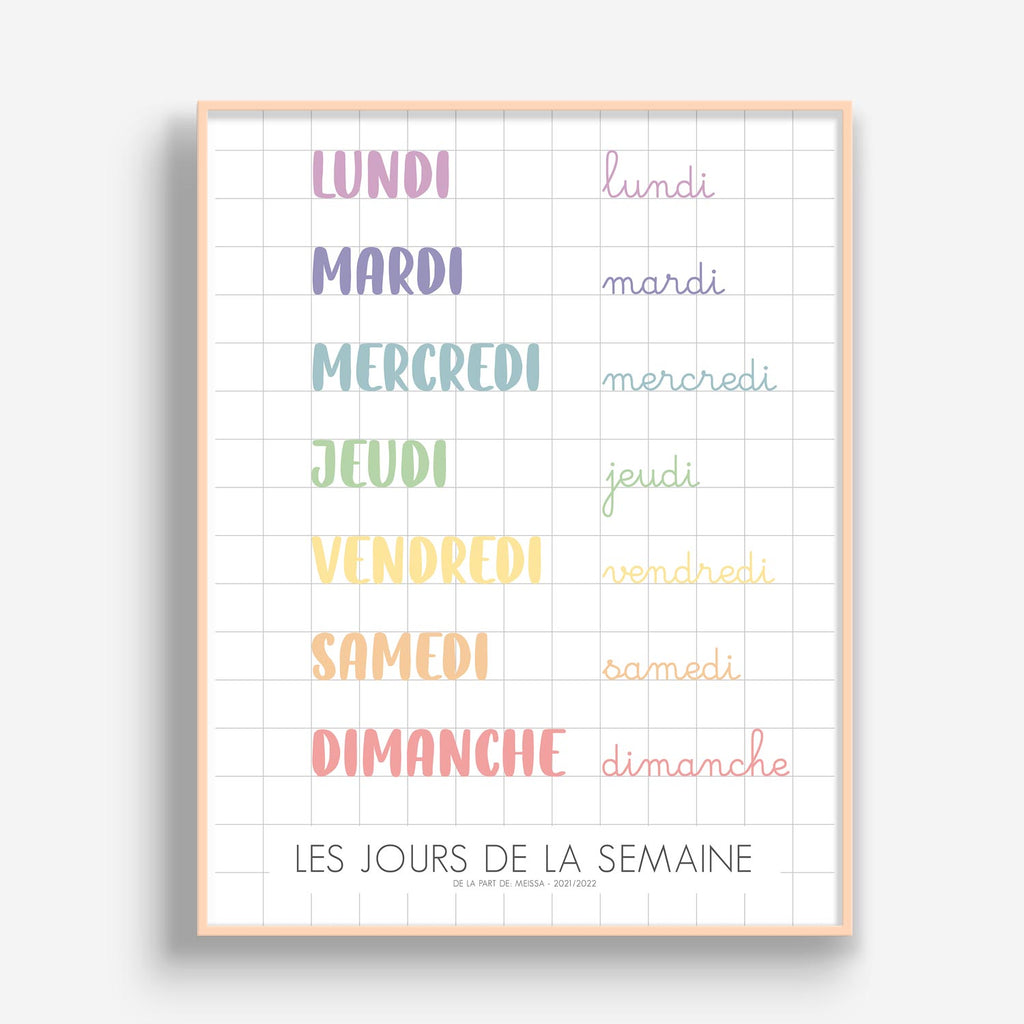 LUNDI lundi
MARDI mardi
MERCREDI mercredi
JEUDI jeudi
VENDREDI vendredi
SAMEDI samedi
DIMANCHE dimanche
LES JOURS DE LA SEMAINE
DE LA PART DE: MEISSA - 2021/2022